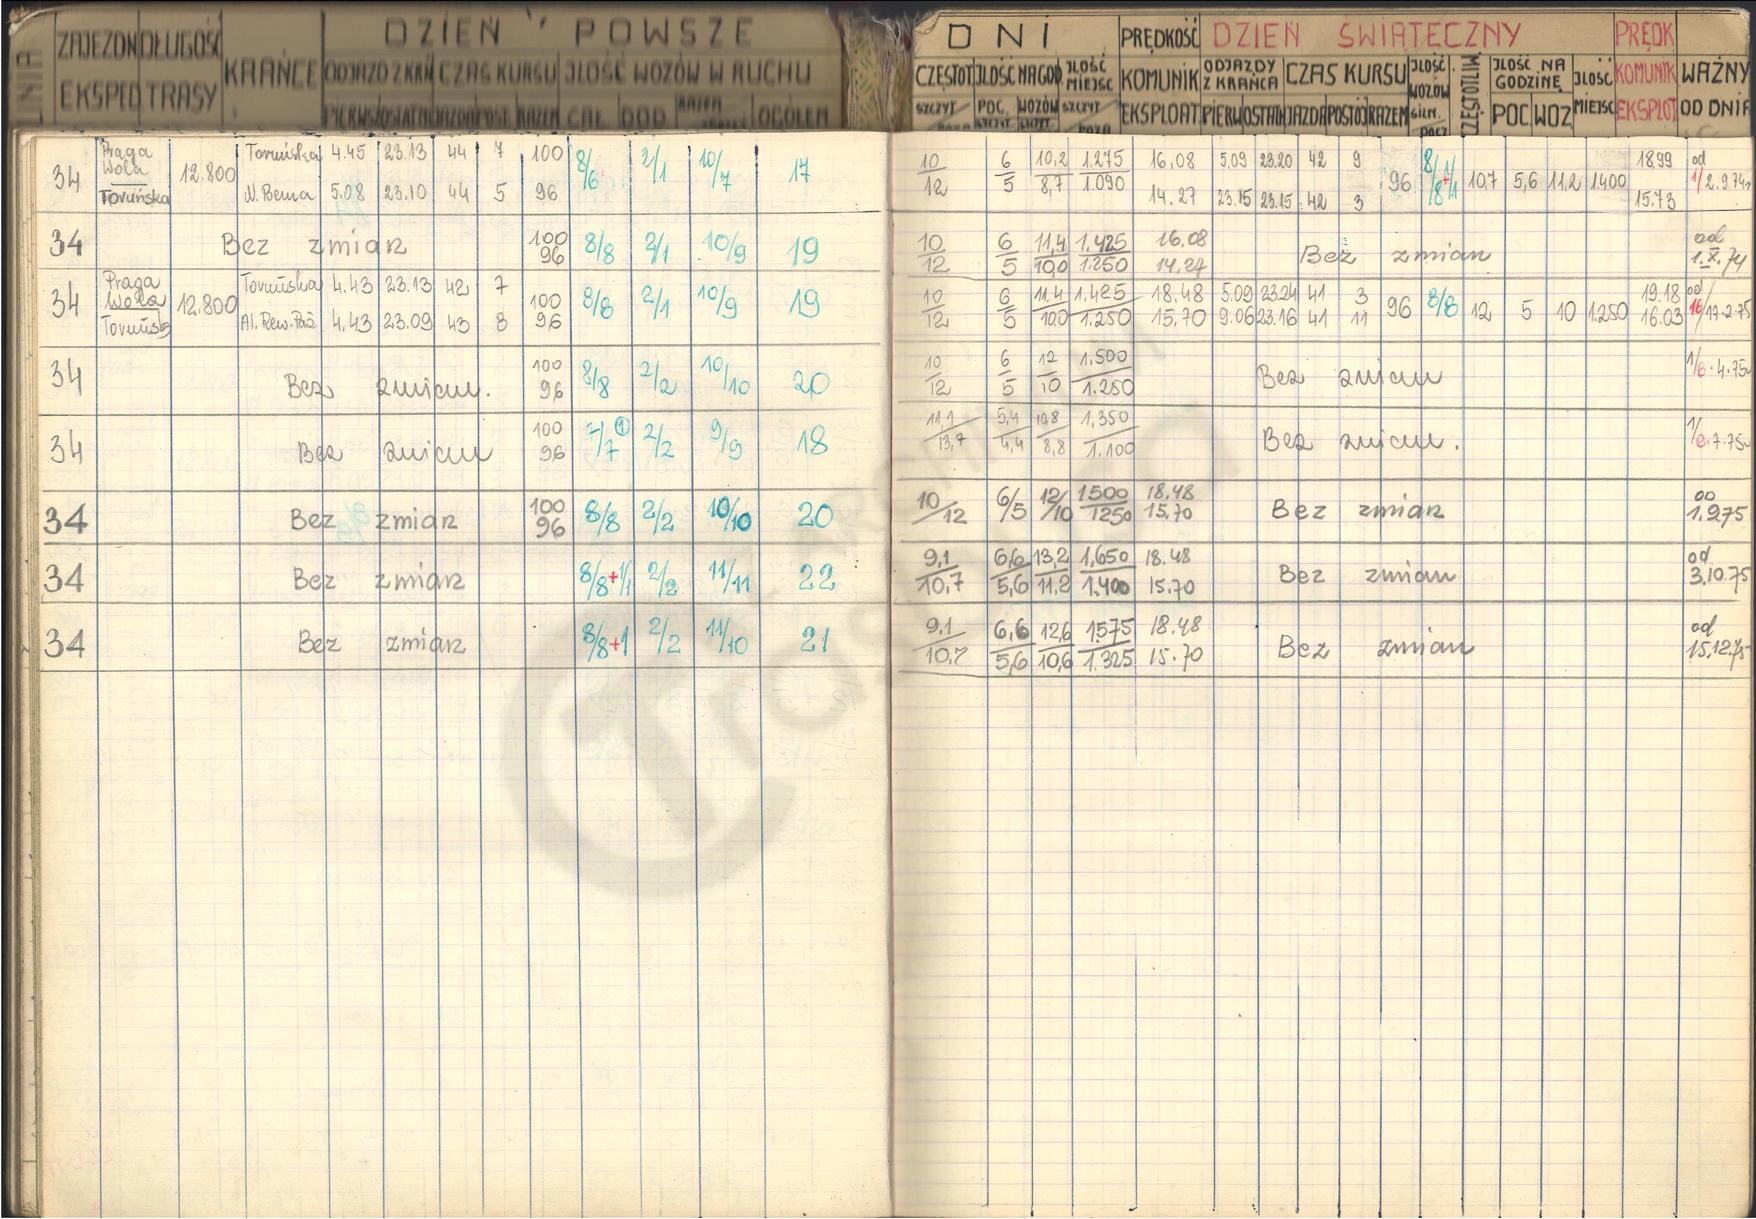 LINIA ZAJEZDN DŁUGOŚĆ KRAŃCE DZIEŃ POWSZE DNI PRĘDKOŚĆ DZIEŃ ŚWIĄTECZNY PRĘDK WAŻNY
EKSPED TRASY ODJAZD Z KRAŃ CZAS KURSU ILOŚĆ WOZÓW W RUCHU CZĘSTOT ILOŚĆ NA GOD ILOŚĆ MIEJSC KOMUNIK ODJAZDY Z KRAŃCA CZAS KURSU ILOŚĆ WOZÓW CZĘSTOTLIW ILOŚĆ NA GODZINĘ ILOŚĆ MIEJSC KOMUNIK OD DNIA
PIERWSZ OSTATN JAZDA POST. RAZEM CAŁ DOD RAZEM OGÓŁEM SZCZYT POC. WOZÓW SZCZYT EKSPLOAT PIERW OSTAN JAZDA POSTÓJ RAZEM POC WOZ EKSPLOT
34 Praga Wola Toruńska 12.800 Toruńska 4.45 23.13 44 7 100 8/6 2/1 10/7 17 10/12 6/5 10,2/8,7 1.275/1.090 16,08 5.09 23.20 42 9 96 8/8+1/1 10,7 5,6 11,2 1.400 18.99 od 1/2.9.74
W. Bema 5.08 23.10 44 5 96 14.27 23.15 23.15 42 3 15.73
34 Bez zmian 100 96 8/8 2/1 10/9 19 10/12 6/5 11,4/10,0 1.425/1.250 16.08 14.27 Bez zmian od 1.X.74
34 Praga Wola Toruńska 12.800 Toruńska 4.43 23.13 42 7 100 8/8 2/1 10/9 19 10/12 6/5 11,4/100 1.425/1.250 18.48 5.09 23.24 41 3 96 8/8 12 5 10 1.250 19.18 od 16/17.2.75
Al. Rew. Paź 4.43 23.09 43 8 96 15,70 9.06 23.16 41 11 16.03
34 Bez zmian. 100 96 8/8 2/2 10/10 20 10/12 6/5 12/10 1.500/1.250 Bez zmian 1/6.4.75
34 Bez zmian 100 96 7/7 ① 2/2 9/9 18 11,1/13,7 5,4/4,4 10,8/8,8 1,350/1.100 Bez zmian.
34 Bez zmian 100 96 8/8 2/2 10/10 20 10/12 6/5 12/10 1500/1250 18.48 15.70 Bez zmian 1.9.75
34 Bez zmian 8/8+1/1 2/2 11/11 22 9,1/10,7 6,6/5,6 13,2/11,2 1,650/1.400 18.48 15.70 Bez zmian od 3.10.75
34 Bez zmian 8/8+1 2/2 11/10 21 9,1/10,7 6,6/5,6 12,6/10,6 1575/1.325 18.48 15.70 Bez zmian od 15.12.75